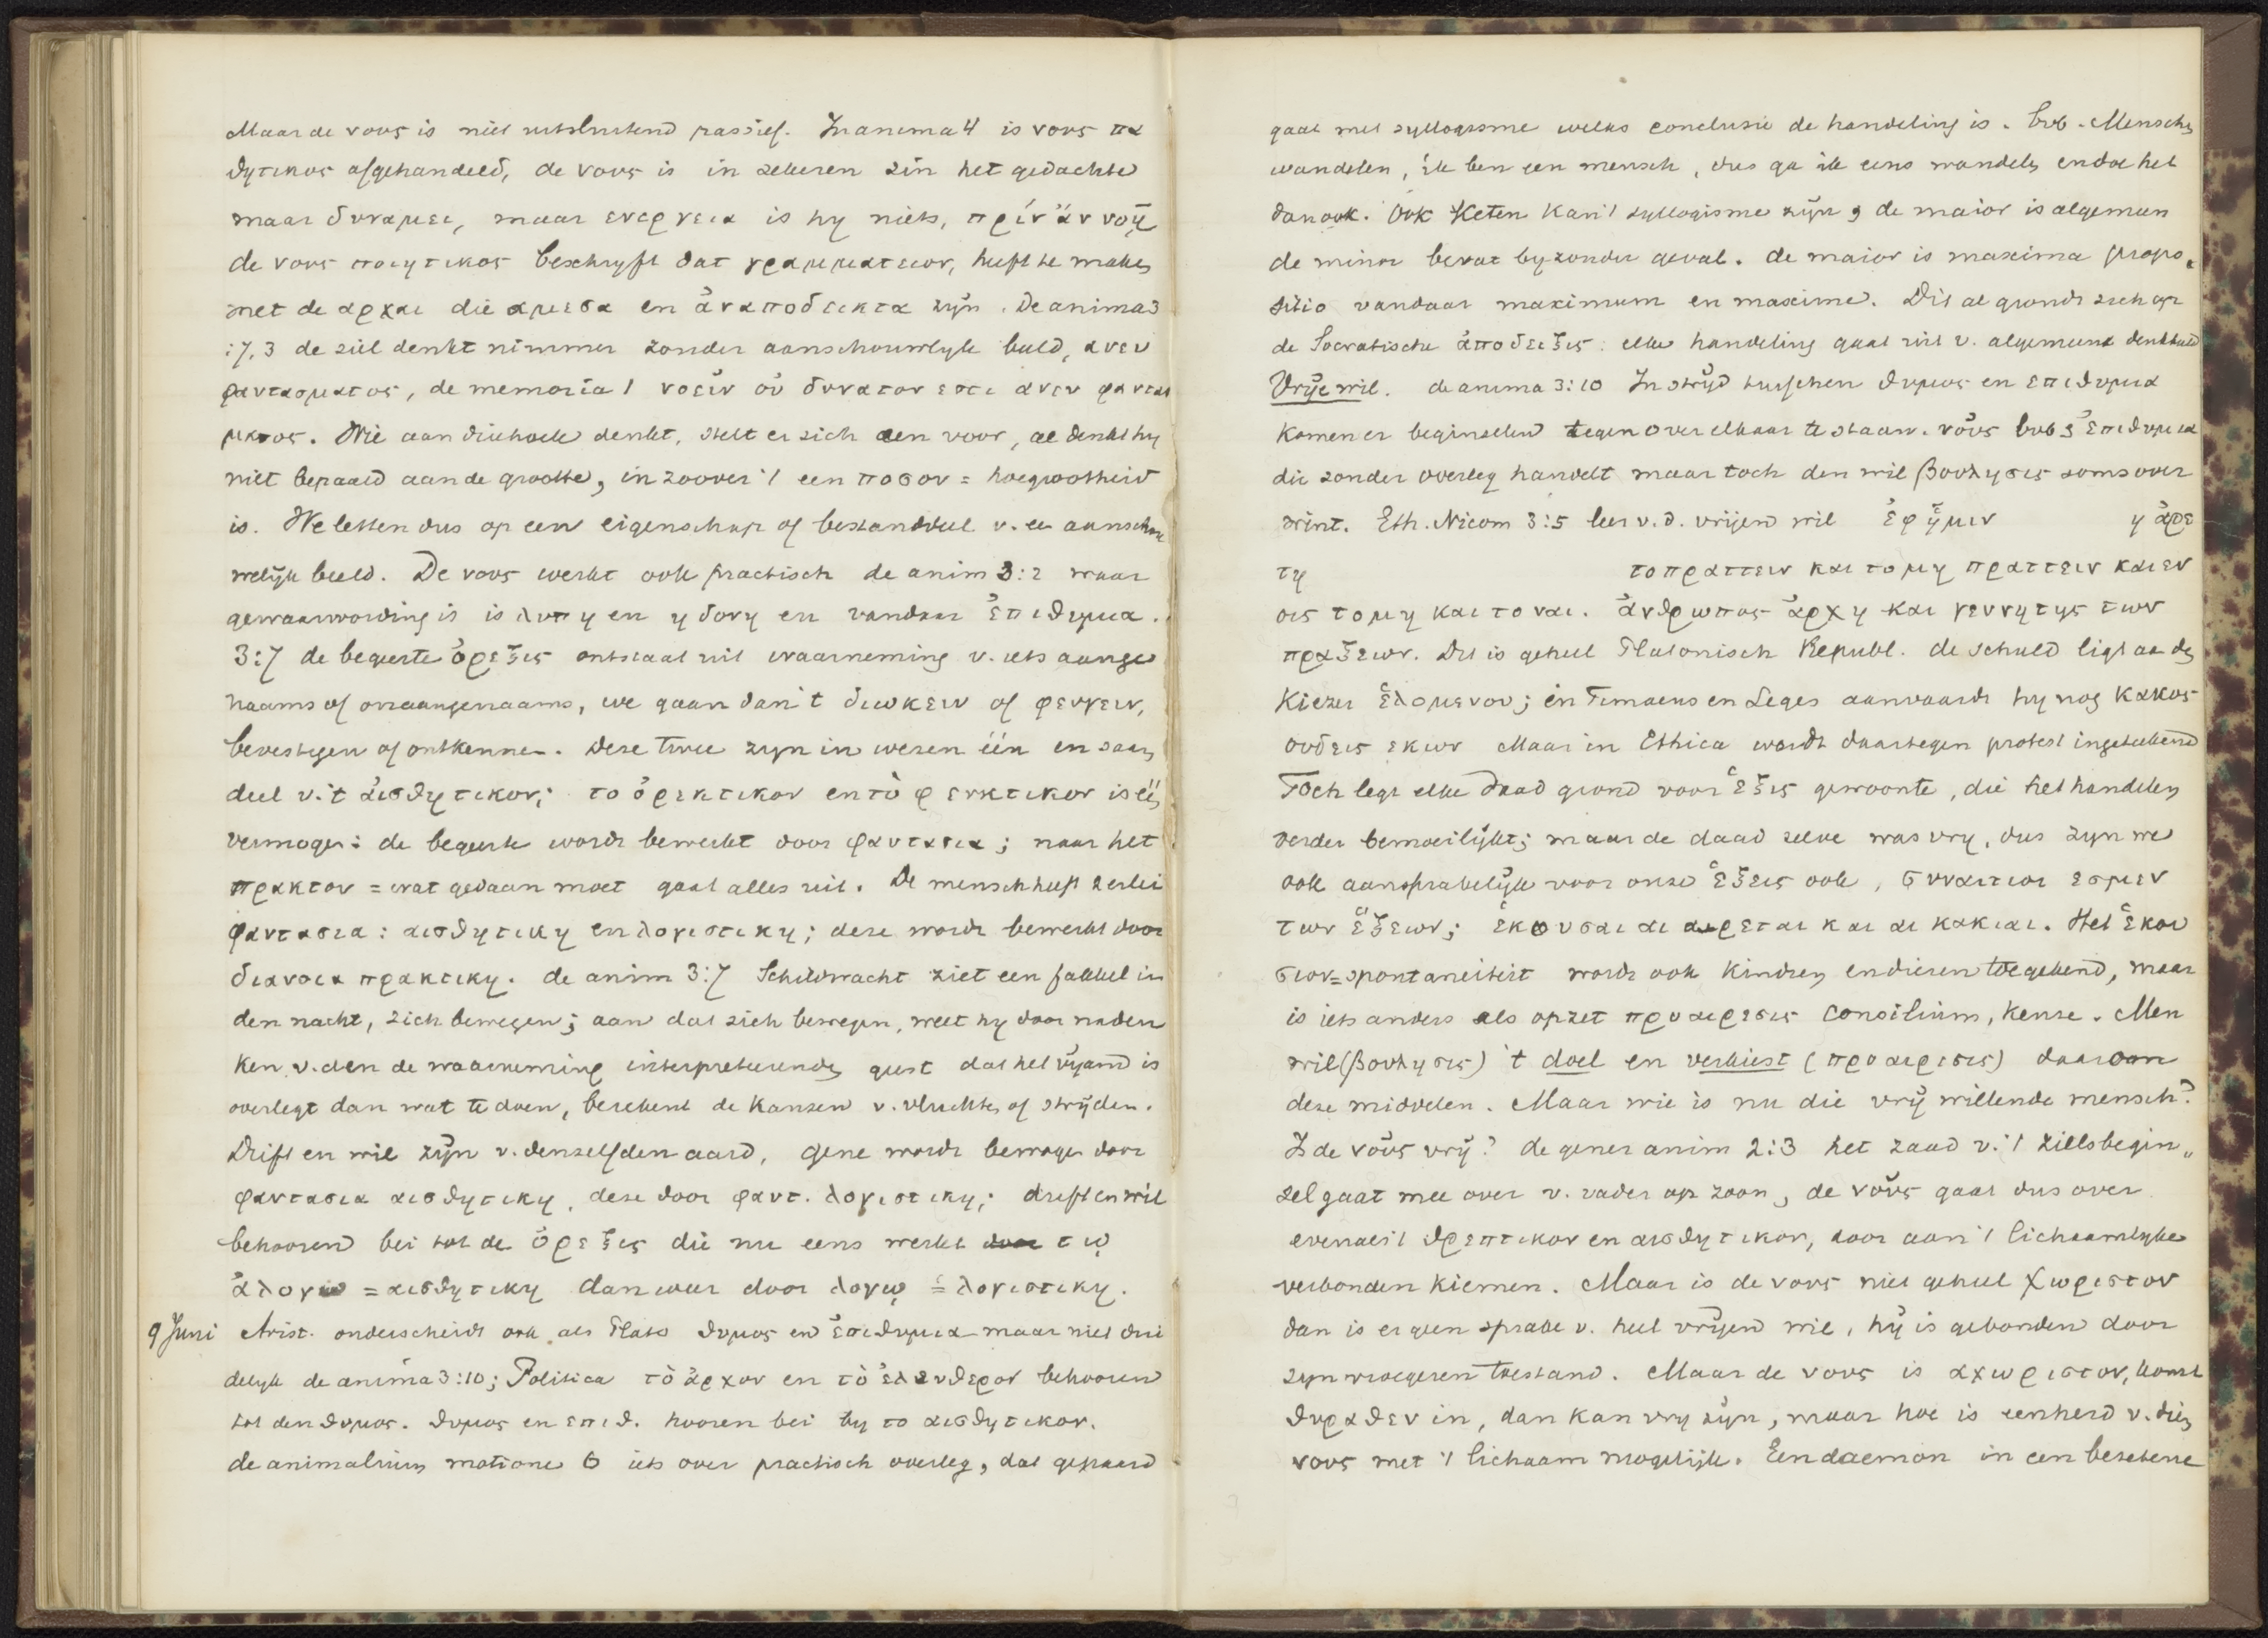 Maar de νους is niet uitsluitend passief. In anima 4 is νους πα
θητικος afgehandeld, de νους is in zekeren zin het gedachte
maar δυναμει, maar ενεργεια is hy niets, πρίν ἄν νοῇ
de νους ποιητικος beschryft dat γραμματειον, heeft te maken
met de αρχαι die αμεσα en ἀναποδεικτα zijn. De anima 3
:7,3 de ziel denkt nimmer zonder aanschouwlyk beeld, ανευ
φαντασματος, de memoria 1 νοεῖν οὐ δυνατον εστι ανευ φαντασ
ματος. Wie aan driehoek denkt, stelt er zich een voor, al denkt hy
niet bepaald aan de grootte, in zoover 't een ποσον = hoegrootheid
is. We letten dus op een eigenschap of bestanddeel v. ee aanschou
welijk beeld. De νους werkt ook practisch de anim 3:2 waar
gewaarwording is is λυπη en ηδονη en vandaar ἐπιθυμια.
3:7 de begeerte ὀρεξις ontstaat uit waarneming v. iets aange
naams of onaangenaams, we gaan dan 't διωκειν of φευγειν,
bevestigen of ontkennen. Deze twee zyn in wezen één en saam
deel v. 't ἀισθητικον; το ὀρεκτικον en τὸ φευκτικον is één
vermogen: de begeerte wordt bewerkt door φαντασια; naar het
πρακτον = wat gedaan moet gaat alles uit. De mensch heeft 2erlei
φαντασια: αισθητικη en λογιστικη; deze wordt bewerkt door
διανοια πρακτικη. de anim 3:7 Schildwacht ziet een fakkel in
den nacht, zich bewegen; aan dat zich bewegen, weet hy door naden
ken v. den de waarneming interpreteerenden geest dat het vijand is
overlegt dan wat te doen, berekent de kansen v. vluchten of strijden.
Drift en wil zijn v. denzelfden aard, gene wordt bewogen door
φαντασια αισθητικη, deze door φαντ. λογιστικη; drift en wil
behooren bei tot de ὀρεξις die nu eens werkt door τῳ
ἀλογω = αισθητικη dan weer door λογῳ = λογιστικη.
9 Juni Arist. onderscheidt ook als Plato θυμος en ἐπιθυμια maar niet dui
delyk de anima 3:10; Politica τὸ ἀρχον en τὸ ἐλευθερον behooren
tot den θυμος. θυμος en επιθ. hooren bei by το αισθητικον.
de animalium motione 6 iets over practisch overleg, dat gepaard
gaat met syllogisme welks conclusie de handeling is. bvb. Menschen
wandelen, ik ben een mensch, dus ga ik eens wandelen en doe het
dan ook. Ook keten kan 't syllogisme zijn, de maior is algemeen
de minor bevat byzonder geval. de maior is maxima propo„
sitio vandaar maximum en maxime. Dit al grondt zich op
de Socratische ἀποδειξις: elke handeling gaat uit v. algemeene denkbeeld
Vrije wil. de anima 3:10 In strijd tusschen θυμος en επιθυμια
komen er beginselen tegenover elkaar te staan. νοῦς bvb ἐπιθυμια
die zonder overleg handelt maar toch den wil βουλησις soms over
wint. Eth. Nicom 3:5 leer v. d. vrijen wil ἐφ ἡμιν η ἀρε
τη το πραττειν και το μη πραττειν και εν
οις το μη και το ναι. ἀνθρωπος ἀρχη και γεννητης των
πραξεων. Dit is geheel Platonisch Republ. de schuld ligt aan den
Kiezer ἑλομενου; in Timaeus en Leges aanvaardt hy nog κακος
ουδεις εκων Maar in Ethica wordt daartegen protest ingeteekend
Toch legt elke daad grond voor ἑξις gewoonte, die het handelen
verder bemoeilijkt; maar de daad zelve was vry, dus zyn we
ook aansprakelijk voor onze ἑξεις ook, συναιτιοι εσμεν
των ἑξεων; ἑκουσαι αι αρεται και αι κακιαι. Het ἑκου
σιον = spontaneiteit wordt ook kindren en dieren toegekend, maar
is iets anders als opzet προαιρεσις consilium, keuze. Men
wil (βουλησις) 't doel en verkiest (προαιρεσις) daaraan
deze middelen. Maar wie is nu die vrij willende mensch?
Is de νοῦς vrij? de gener anim 2:3 het zaad v. 't zielsbegin„
sel gaat mee over v. vader op zoon, de νοῦς gaat dus over
evenals 't θρεπτικον en αισθητικον, door aan 't lichaamlyke
verbonden kiemen. Maar is de νους niet geheel χωριστον
dan is er geen sprake v. heel vrijen wil, hij is gebonden door
zyn vroegeren toestand. Maar de νους is αχωριστον, komt
θυραθεν in, dan kan vry zijn, maar hoe is eenheid v. dien
νους met 't lichaam mogelijk. Een daemon in een bezetene